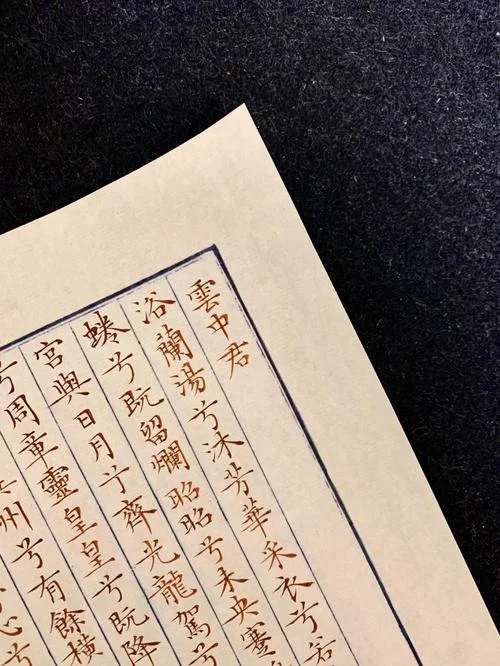 雲中君
浴蘭湯兮沐芳華采衣兮若
蜷兮既留爛昭昭兮未央蹇
宮與日月兮齊光龍駕兮
兮周章靈皇皇兮既降
州兮有餘橫
心兮